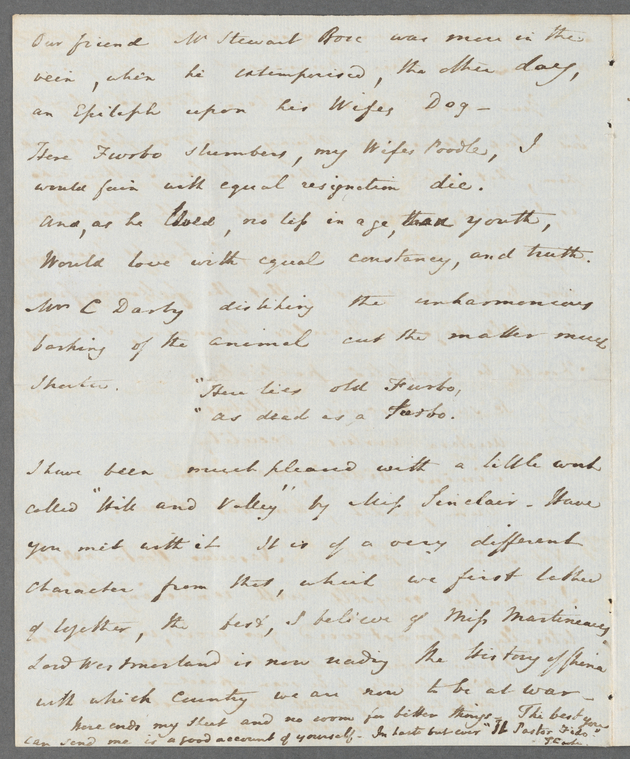 Our friend Mr Stewart Rose was more in the
vein, when he extemporised, the other day,
an Epitaph upon his Wifes Dog —
Here Furbo slumbers, my Wifes Poodle, I
would fain with equal resignation die.
And, as he lived, no less in age, than youth,
Would love with equal constancy, and truth.
Mrs C Darby disliking the unharmonious
barking of the animal cut the matter much
shorter. "Here lies old Furbo,
" as dead as a turbo.
I have been much pleased with a little work
called "Hill and Valley" by Miss Sinclair - Have
you met with it It is of a very different
character from that, which we first talked
of together, the best, I believe of Miss Martineaus
Lord Westmorland is now reading the History of China
with which country we are now to be at war —
Here ends my sheet and no room for better things — The best you
can send me is a good account of yourself. In haste but ever "Il Pastor Fido.